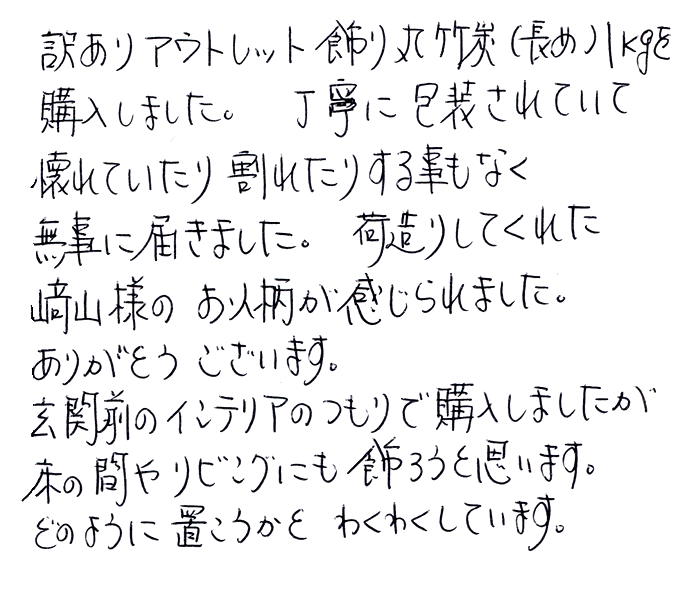 訳ありアウトレット飾り丸竹炭(長め)1kgを
購入しました。 丁寧に包装されていて
懐れていたり割れたりする事もなく
無事に届きました。 荷造りしてくれた
﨑山様のお人柄が感じられました。
ありがとうございます。
玄関前のインテリアのつもりで購入しましたが
床の間やリビングにも飾ろうと思います。
どのように置ころかと わくわくしています。